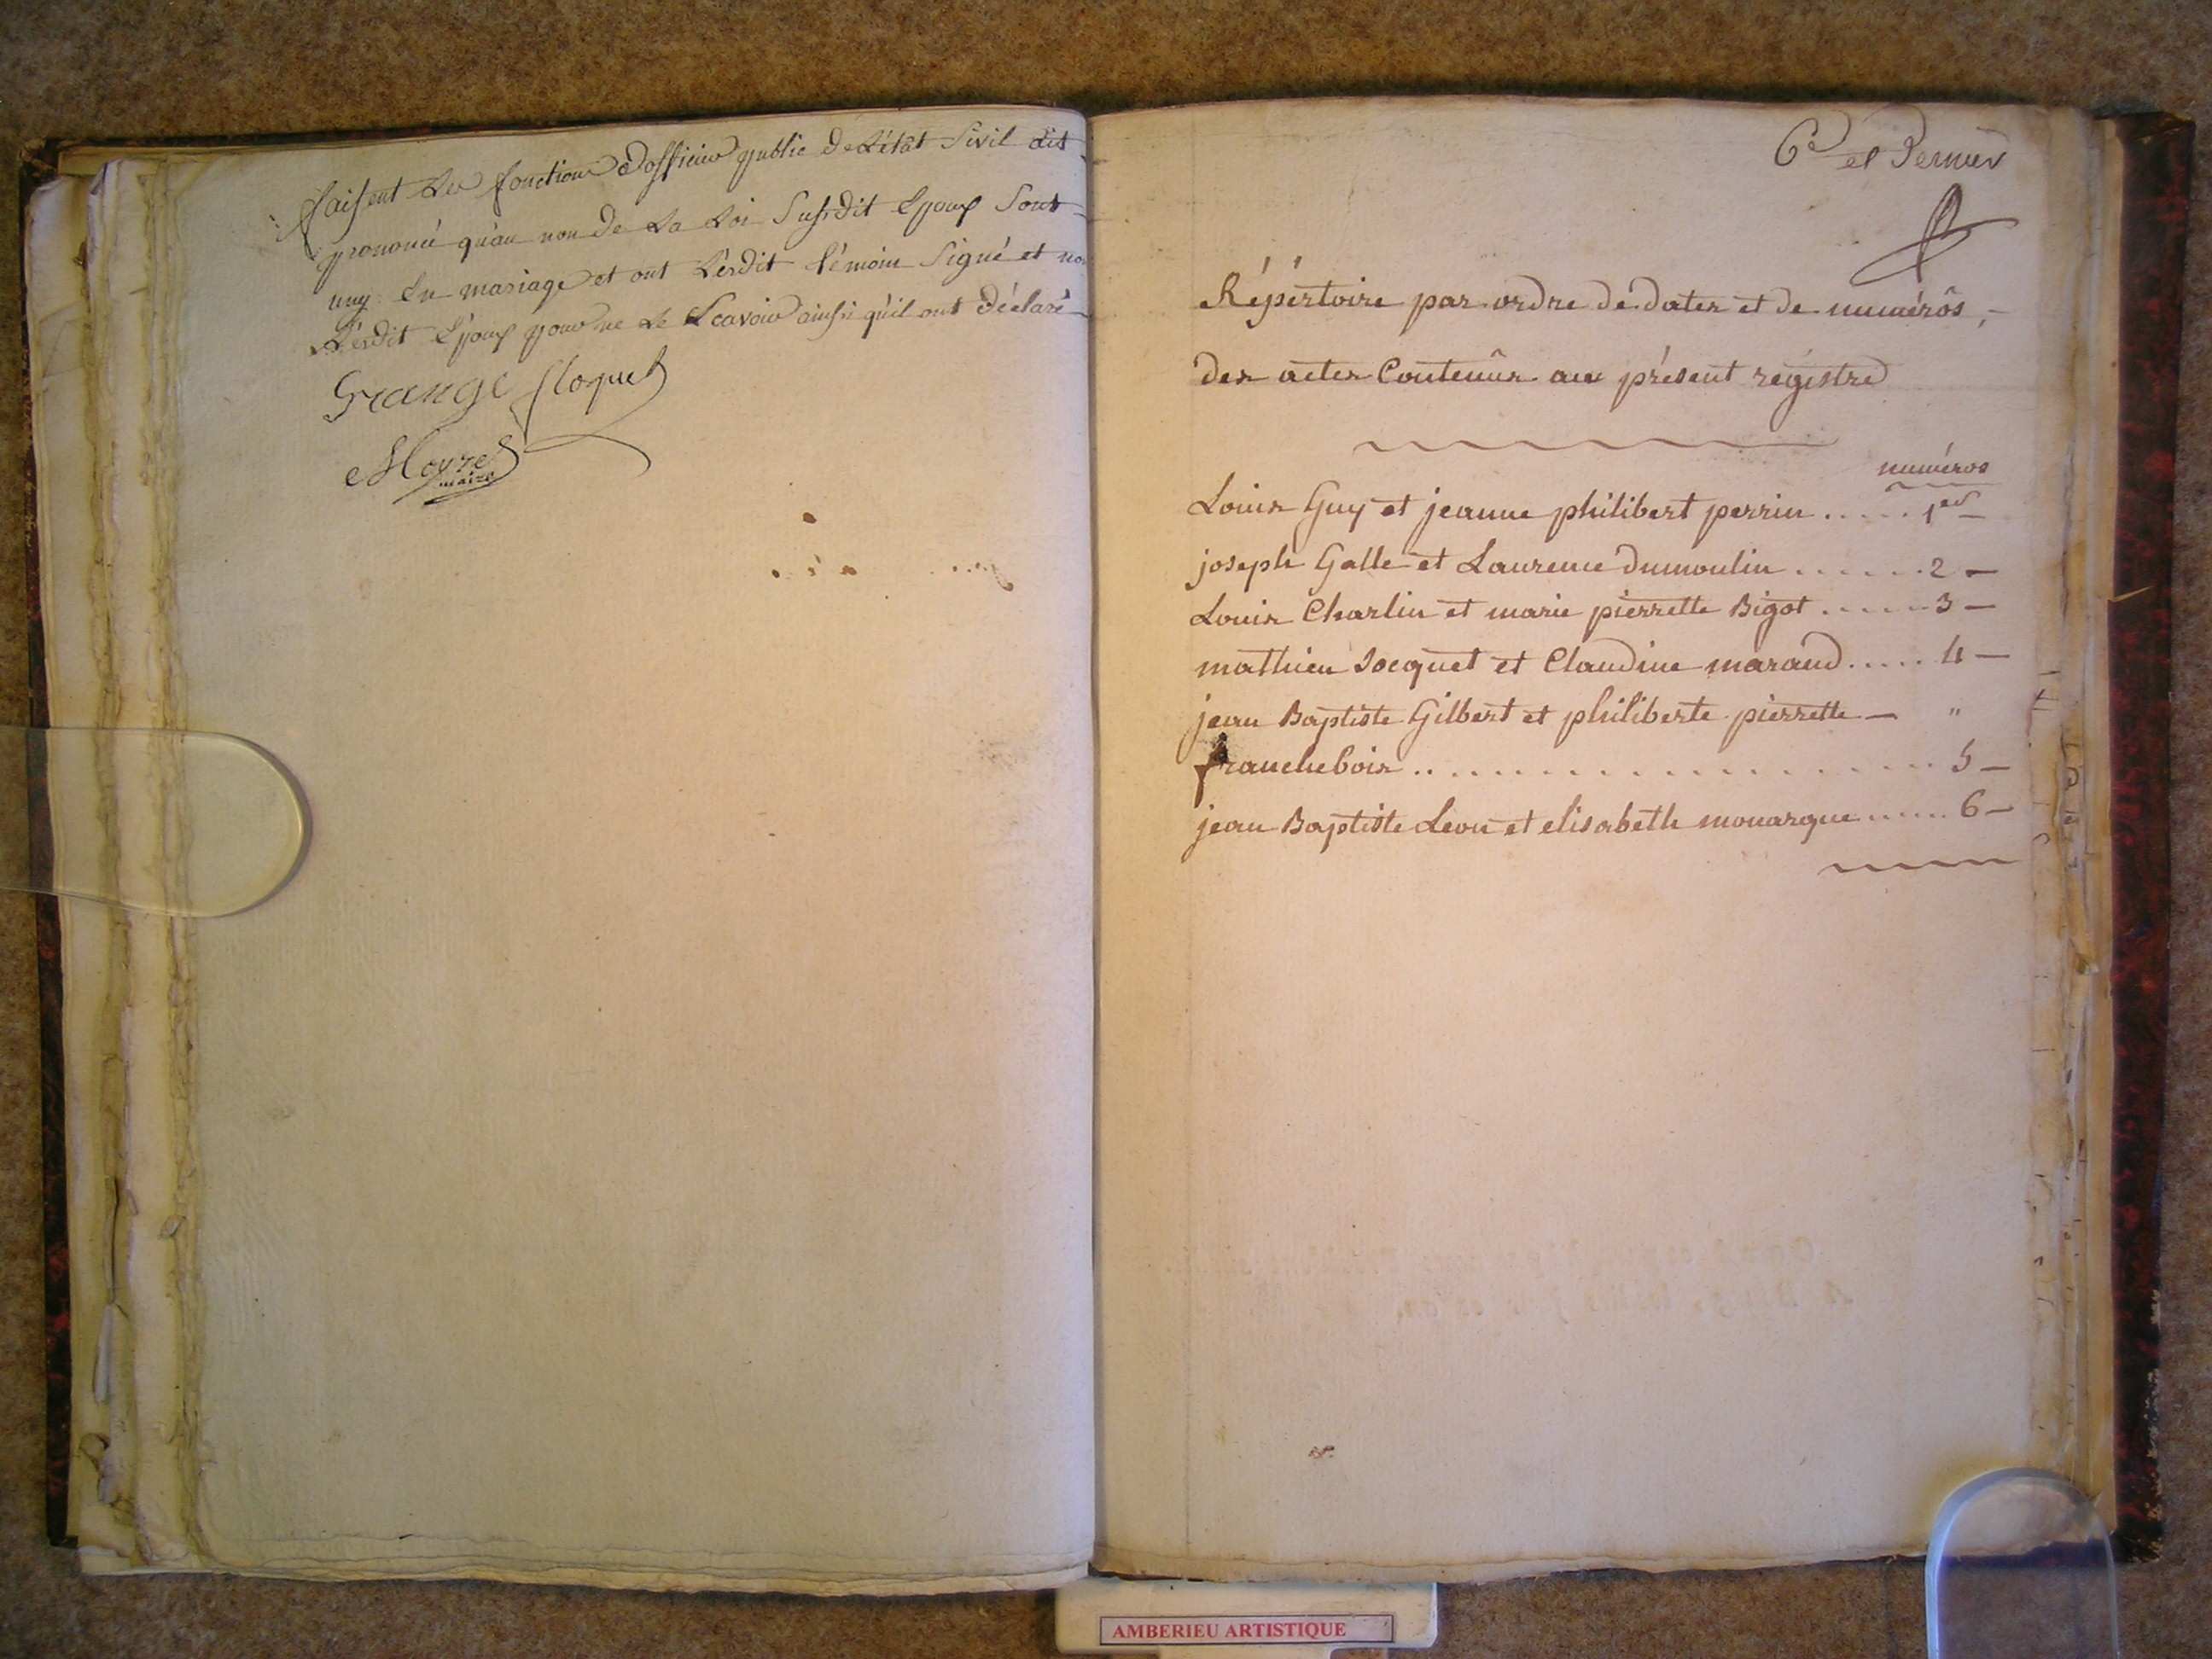 faisent Les fonctions d'officier public de L'état Sivil dit
prononcé qu'au non de La Loi Susdit Epoux Sont
uny En mariage et ont Lésdit témoin Signé et non
Lésdit Epoux pour ne Le Scavoir ainsi qu'il ont déclaré
Grange Cloquet
Moyret
maire
6e et Dernier
Répértoire par ordre de dates et de numérôs,
des actes Contenûs au présent régistre
numéros
Louis Guy et jeanne philibert perrin ..... 1er
joseph Galle et Laurence Dumoulin ...... 2 –
Louis Charlin et marie pierrette Bigot ..... 3 –
mathieu Socquet et Claudine marand ..... 4 –
jean Baptiste Gilbert et philiberte pierrette – "
franchebois .................... 5 –
jean Baptiste Leon et elisabeth monarque ...... 6 –
AMBERIEU ARTISTIQUE